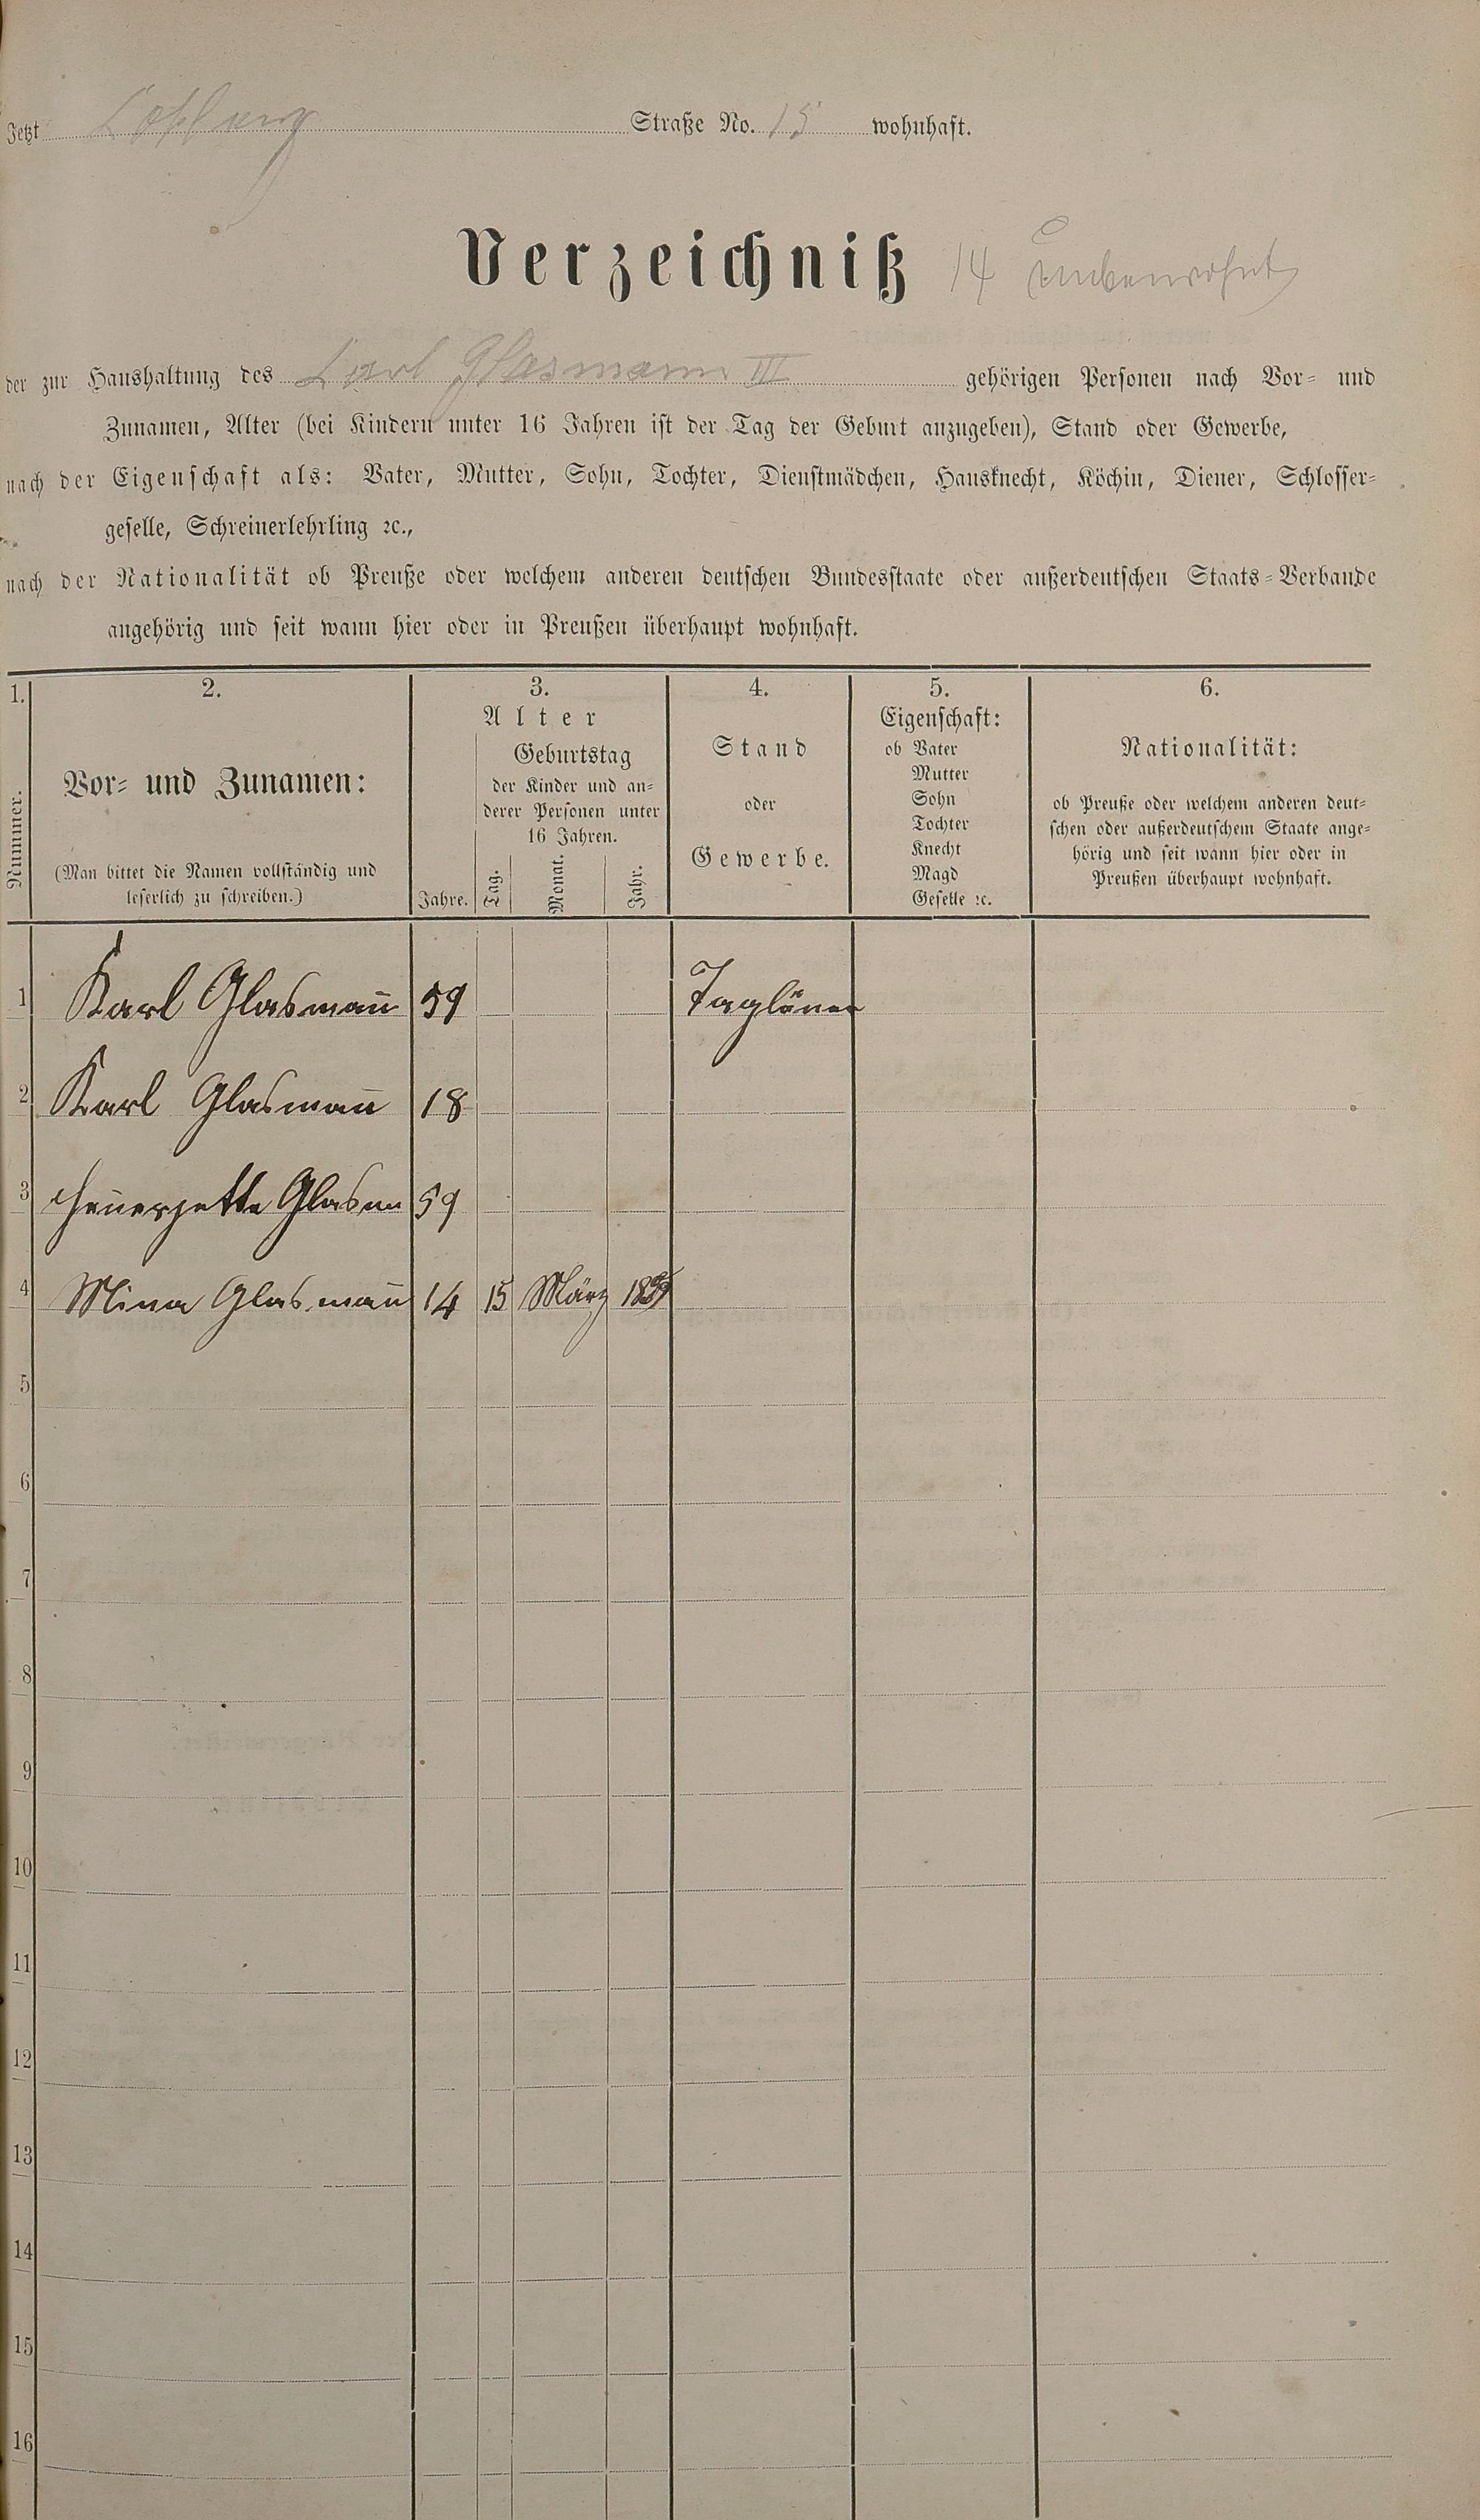 Jetzt Straße No. 15 wohnhaft.
Verzeichniß 14 unbewohnt
der zur Haushaltung des Carl Glasmann III gehörigen Personen nach Vor- und
Zunamen, Alter (bei Kindern unter 16 Jahren ist der Tag der Geburt anzugeben), Stand oder Gewerbe,
nach der Eigenschaft als: Vater, Mutter, Sohn, Tochter, Dienstmädchen, Hausknecht, Köchin, Diener, Schlosser-
geselle, Schreinerlehrling ꝛc.,
nach der Nationalität ob Preuße oder welchem anderen deutschen Bundesstaate oder außerdeutschen Staats-Verbande
angehörig und seit wann hier oder in Preußen überhaupt wohnhaft.
1.
Nummer.
2.
Vor- und Zunamen:
(Man bittet die Namen vollständig und
leserlich zu schreiben.)
3.
Alter
Geburtstag
der Kinder und an-
derer Personen unter
16 Jahren.
Jahre. Tag. Monat. Jahr.
4.
Stand
oder
Gewerbe.
5.
Eigenschaft:
ob Vater
Mutter
Sohn
Tochter
Knecht
Magd
Geselle ꝛc.
6.
Nationalität:
ob Preuße oder welchem anderen deut-
schen oder außerdeutschem Staate ange-
hörig und seit wann hier oder in
Preußen überhaupt wohnhaft.
1 Karl Glasman̄ 59 Taglöner
2 Karl Glasman̄ 18
3 Glasm 59
4 Mina Glasman̄ 14 15 März
5
6
7
8
9
10
11
12
13
14
15
16